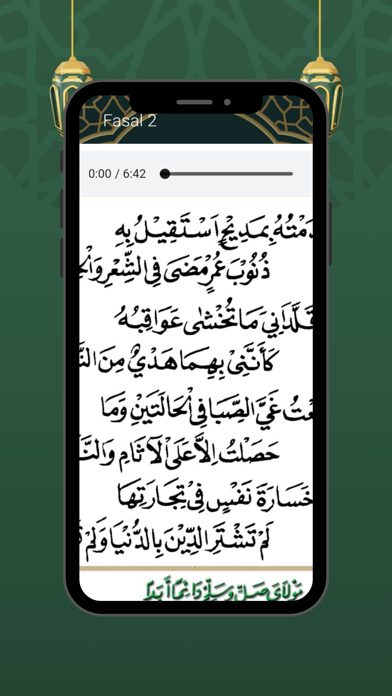 Fasal 2
0:00 / 6:42
دَمْتُهُ بِمَدِيْحٍ اَسْتَقِيْلُ بِهِ
ذُنُوْبَ عُمْرٍ مَضَى فِى الشِّعْرِ وَالْخِ
قَلَّدَانِيَ مَا تُخْشٰى عَوَاقِبُهُ
كَأَنَّنِىْ بِهِمَا هَدْيٌ مِنَ النَّ
عْتُ غَيَّ الصِّبَا فِى الْحَالَتَيْنِ وَمَا
حَصَلْتُ اِلاَّ عَلَى الْآثَامِ وَالنَّ
خَسَارَةَ نَفْسٍ فِىْ تِجَارَتِهَا
لَمْ تَشْتَرِ الدِّيْنَ بِالدُّنْيَا وَلَمْ تَ
مَوْلَايَ صَلِّ وَسَلِّمْ دَائِمًا أَبَدًا